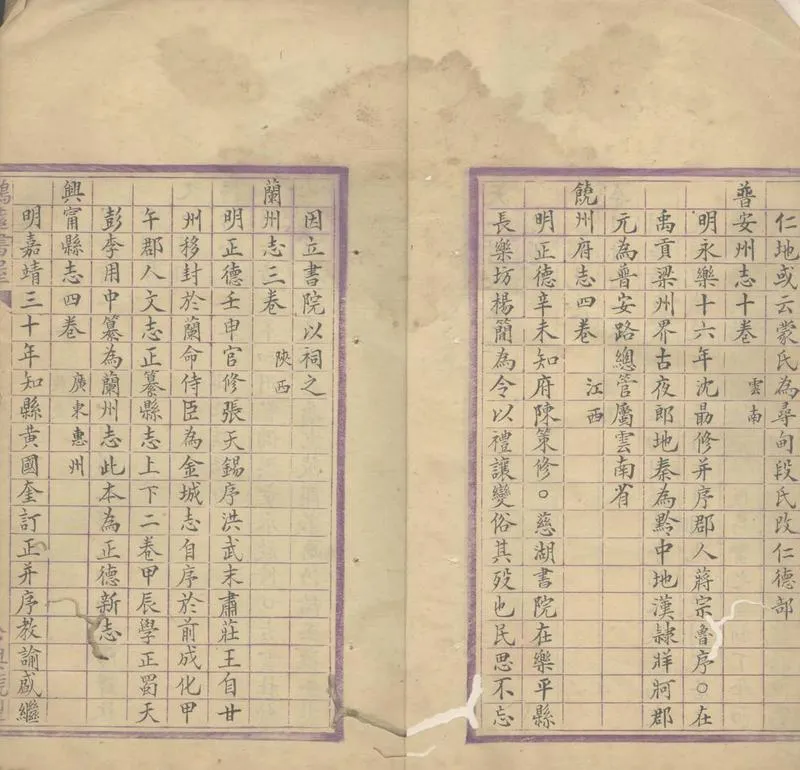 仁地或云蒙氏為尋甸段氏改仁德部
普安州志十卷 雲南
明永樂十六年沈勗修并序郡人蔣宗魯序○在
禹貢梁州界古夜郎地秦為黔中地漢隸牂牁郡
元為普安路總管屬雲南省
饒州府志四卷 江西
明正德辛未知府陳策修○慈湖書院在樂平縣
長樂坊楊簡為令以禮讓變俗其歿也民思不忘
因立書院以祠之
蘭州志三卷 陝西
明正德壬申官修張天錫序洪武末肅莊王自甘
州移封於蘭命侍臣為金城志自序於前成化甲
午郡人文志正纂縣志上下二卷甲辰學正蜀天
彭李用中纂為蘭州志此本為正德新志
興甯縣志四卷 廣東惠州
明嘉靖三十年知縣黃國奎訂正并序教諭盛繼